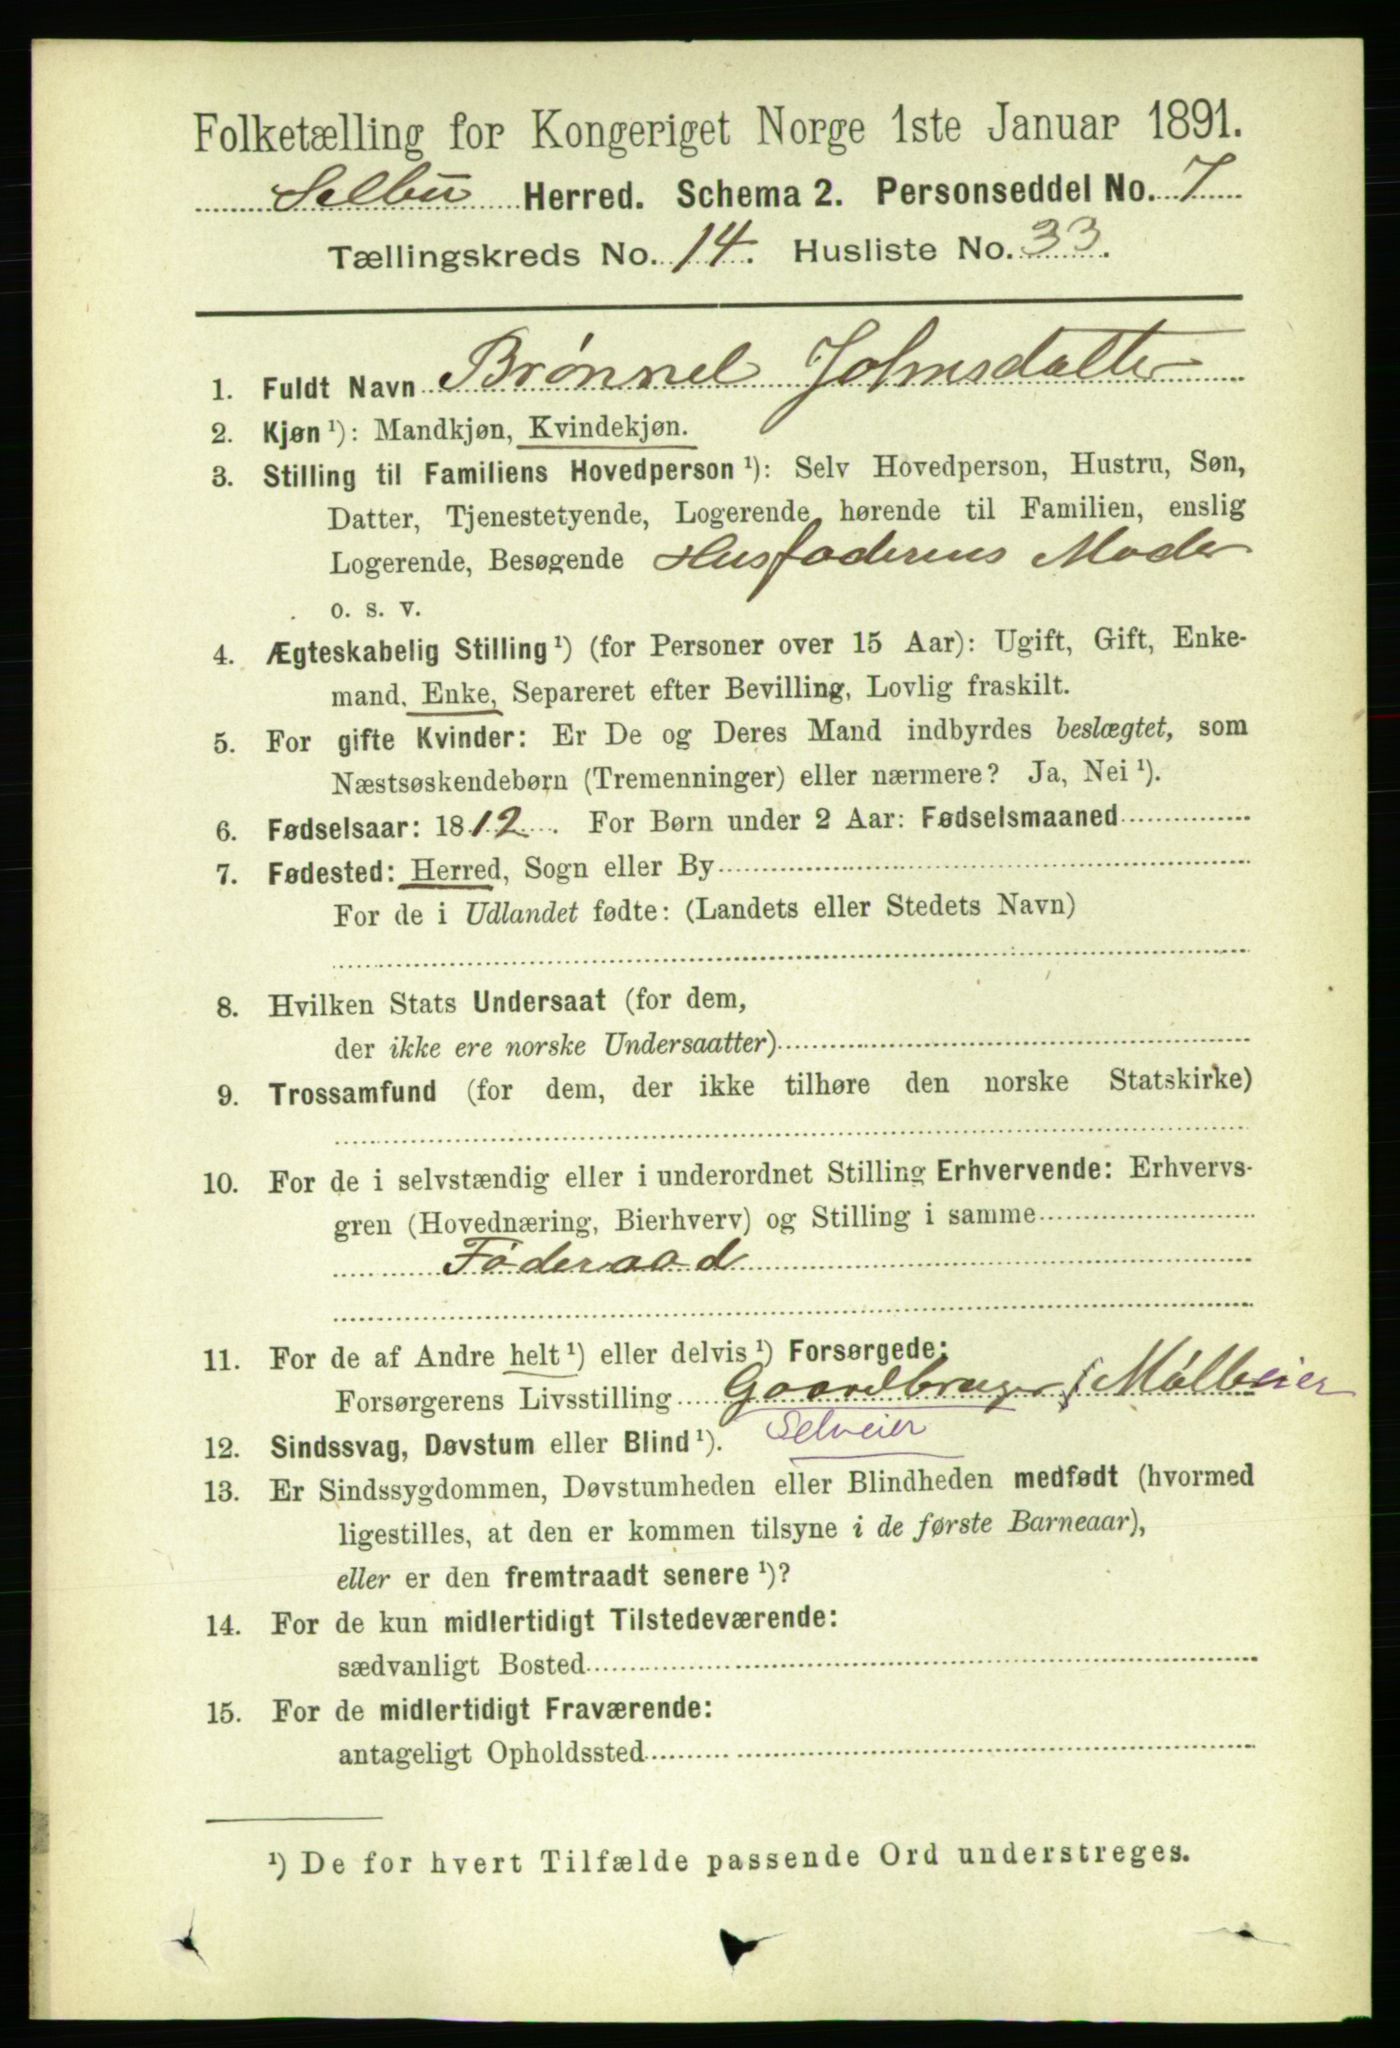 Folketælling for Kongeriget Norge 1ste Januar 1891.
Selbu Herred. Schema 2. Personseddel No. 7
Tællingskreds No. 14. Husliste No. 33.
1. Fuldt Navn Brønnel Johnsdatter
2. Kjøn ¹): Mandkjøn, Kvindekjøn.
3. Stilling til Familiens Hovedperson ¹): Selv Hovedperson, Hustru, Søn,
Datter, Tjenestetyende, Logerende hørende til Familien, enslig
Logerende, Besøgende Husfaderens Moder
o. s. v.
4. Ægteskabelig Stilling ¹) (for Personer over 15 Aar): Ugift, Gift, Enke-
mand, Enke, Separeret efter Bevilling, Lovlig fraskilt.
5. For gifte Kvinder: Er De og Deres Mand indbyrdes beslægtet, som
Næstsøskendebørn (Tremenninger) eller nærmere? Ja, Nei ¹).
6. Fødselsaar: 1812. For Børn under 2 Aar: Fødselsmaaned
7. Fødested: Herred, Sogn eller By
For de i Udlandet fødte: (Landets eller Stedets Navn)
8. Hvilken Stats Undersaat (for dem,
der ikke ere norske Undersaatter)
9. Trossamfund (for dem, der ikke tilhøre den norske Statskirke)
10. For de i selvstændig eller i underordnet Stilling Erhvervende: Erhvervs-
gren (Hovednæring, Bierhverv) og Stilling i samme
Føderaad
11. For de af Andre helt ¹) eller delvis ¹) Forsørgede:
Forsørgerens Livsstilling Gaardbruger
Selveier
12. Sindssvag, Døvstum eller Blind ¹).
13. Er Sindssygdommen, Døvstumheden eller Blindheden medfødt (hvormed
ligestilles, at den er kommen tilsyne i de første Barneaar),
eller er den fremtraadt senere ¹)?
14. For de kun midlertidigt Tilstedeværende:
sædvanligt Bosted
15. For de midlertidigt Fraværende:
antageligt Opholdssted
¹) De for hvert Tilfælde passende Ord understreges.